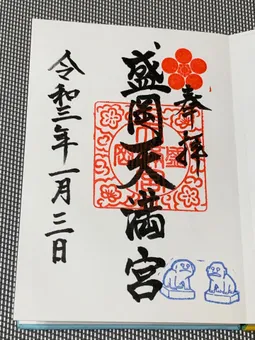 奉拝
盛岡天満宮
令和三年一月三日